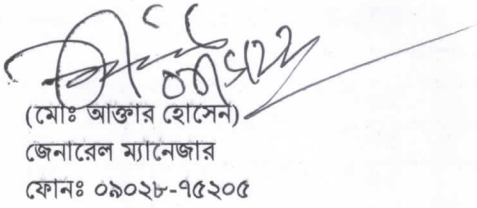 (মোঃ আক্তার হোসেন)
জেনারেল ম্যানেজার
ফোনঃ ০৯০২৮-৭৫২০৫